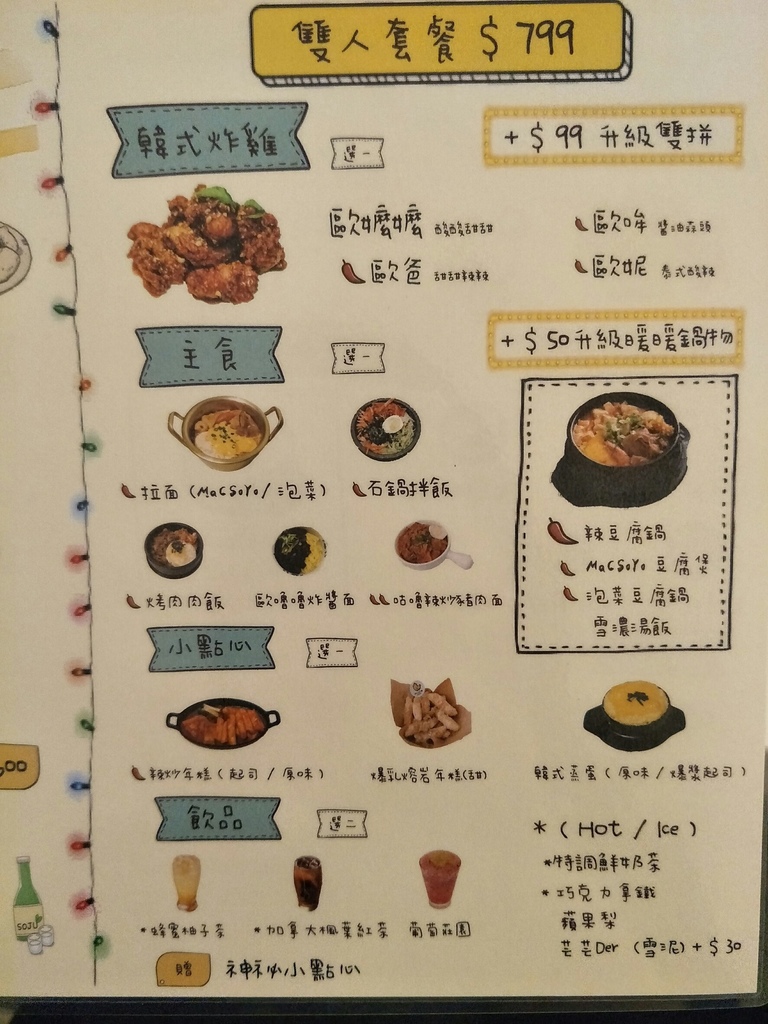 雙人套餐 $799
韓式炸雞
選一
+ $99 升級雙拼
歐嬤嬤 酸酸甜甜
歐哞 醬油蒜頭
歐爸 甜甜辣辣
歐妮 泰式酸辣
主食
選一
+ $50 升級暖暖鍋物
拉面 (MaCSoYo / 泡菜)
石鍋拌飯
烤肉肉飯
歐嚕嚕炸醬面
咕嚕辣炒豬肉面
辣豆腐鍋
MaCSoYo 豆腐煲
泡菜豆腐鍋
雪濃湯飯
小點心
選一
辣炒年糕 (起司 / 原味)
爆乳熔岩年糕(甜)
韓式蒸蛋 (原味 / 爆漿起司)
飲品
選二
*蜂蜜柚子茶
*加拿大楓葉紅茶
葡萄莊園
* (Hot / Ice)
*特調鮮奶茶
*巧克力拿鐵
蘋果梨
芒芒Der (雪泥) + $30
贈
神祕小點心
00
SOJU